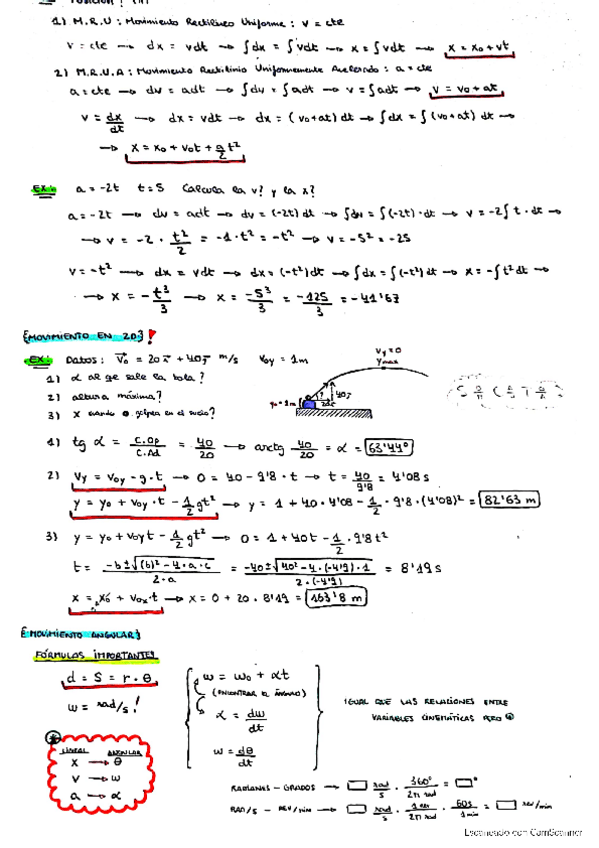 1) M.R.U : Movimiento Rectilíneo Uniforme : v = cte
v = cte → dx = vdt → ∫dx = ∫vdt → x = ∫vdt → x = x₀ + vt
2) M.R.U.A : Movimiento Rectilínio Uniformemente Acelerado : a = cte
a = cte → dv = adt → ∫dv = ∫adt → v = ∫adt → v = v₀ + at
v = dx/dt → dx = vdt → dx = (v₀+at) dt → ∫dx = ∫(v₀+at) dt →
→ x = x₀ + v₀t + a/2 t²
EX: a = -2t t = 5 Calcula la v? y la x?
a = -2t → dv = adt → dv = (-2t) dt → ∫dv = ∫(-2t)·dt → v = -2∫t·dt →
→ v = -2 · t²/2 = -1·t² = -t² → v = -5² = -25
v = -t² → dx = vdt → dx = (-t²)dt → ∫dx = ∫(-t²) dt → x = -∫t²dt →
→ x = -t³/3 → x = -5³/3 = -125/3 = -41'67
{MOVIMIENTO EN 2D} !
EX: Datos : v₀ = 20i + 40j m/s y₀y = 1m
1) α al qe sale la bola?
2) altura máxima?
3) x cuando golpea en el suelo?
Vy = 0
ymax
y₀ = 1m
40j
20i
1) tg α = C.Op/C.Ad = 40/20 → arctg 40/20 = α = 63'44°
2) Vy = V₀y - g·t → 0 = 40 - 9'8 · t → t = 40/9'8 = 4'08 s
y = y₀ + v₀y · t - 1/2 gt² → y = 1 + 40 · 4'08 - 1/2 · 9'8 · (4'08)² = 82'63 m
3) y = y₀ + v₀yt - 1/2 gt² → 0 = 1 + 40t - 1/2 · 9'8 t²
t = -b ± √(b)² - 4·a·c / 2·a = -40 ± √40² - 4·(-4'9)·1 / 2·(-4'9) = 8'19 s
x = x₀ + v₀x · t → x = 0 + 20 · 8'19 = 163'8 m
{MOVIMIENTO ANGULAR}
FÓRMULAS IMPORTANTES
d = S = r · θ
ω = rad/s !
LINEAL ANGULAR
x → θ
v → ω
a → α
ω = ω₀ + αt
(ENCONTRAR EL ÁNGULO)
α = dω/dt
ω = dθ/dt
IGUAL QUE LAS RELACIONES ENTRE
VARIABLES CINEMÁTICAS PERO
RADIANES - GRADOS → □ rad/s · 360°/2π rad = □°
RAD/S - REV/MIN → □ rad/s · 1 rev/2π rad · 60s/1 min = □ rev/min
Escaneado con CamScanner